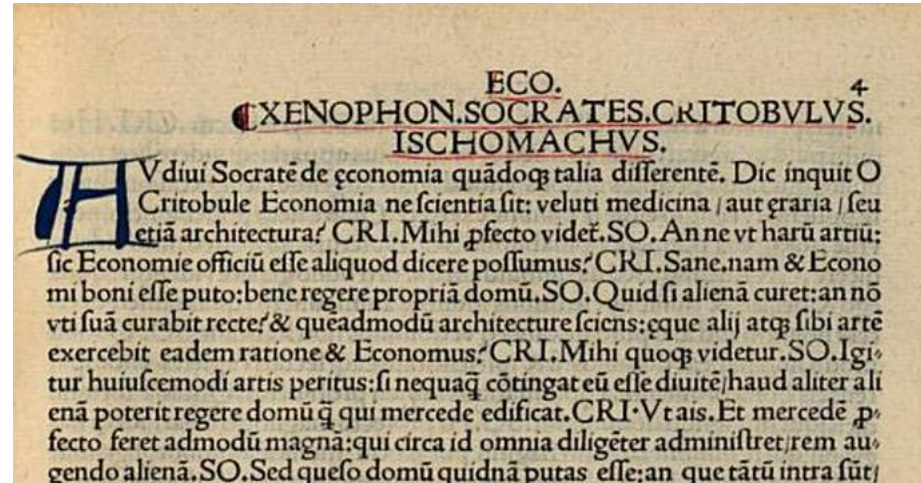 ECO. 4
XENOPHON.SOCRATES.CRITOBVLVS.
ISCHOMACHVS.
AVdiui Socratē de ęconomia quãdoqꝫ talia diſſerentē. Dic inquit O
Critobule Economia ne ſcientia ſit: veluti medicina / aut ęraria / ſeu
etiã architectura? CRI.Mihi ꝓfecto videť.SO.An ne vt harũ artiũ:
ſic Economie officiũ eſſe aliquod dicere poſſumus? CRI.Sane.nam & Econo
mi boni eſſe puto: bene regere propriã domũ.SO.Quid ſi alienã curet: an nõ
vti ſuã curabit recte? & quēadmodũ architecture ſciens: ęque alij atqꝫ ſibi artē
exercebit eadem ratione & Economus? CRI.Mihi quoqꝫ videtur.SO.Igi-
tur huiuſcemodi artis peritus: ſi nequaq̄ cõtingat eũ eſſe diuitē / haud aliter ali
enã poterit regere domũ q̄ qui mercede edificat.CRI.Vt ais.Et mercedē ꝓ-
fecto feret admodũ magnã: qui circa id omnia diligēter adminiſtret / rem au-
gendo alienã.SO.Sed queſo domũ quidnã putas eſſe: an que tãtũ intra ſũt /